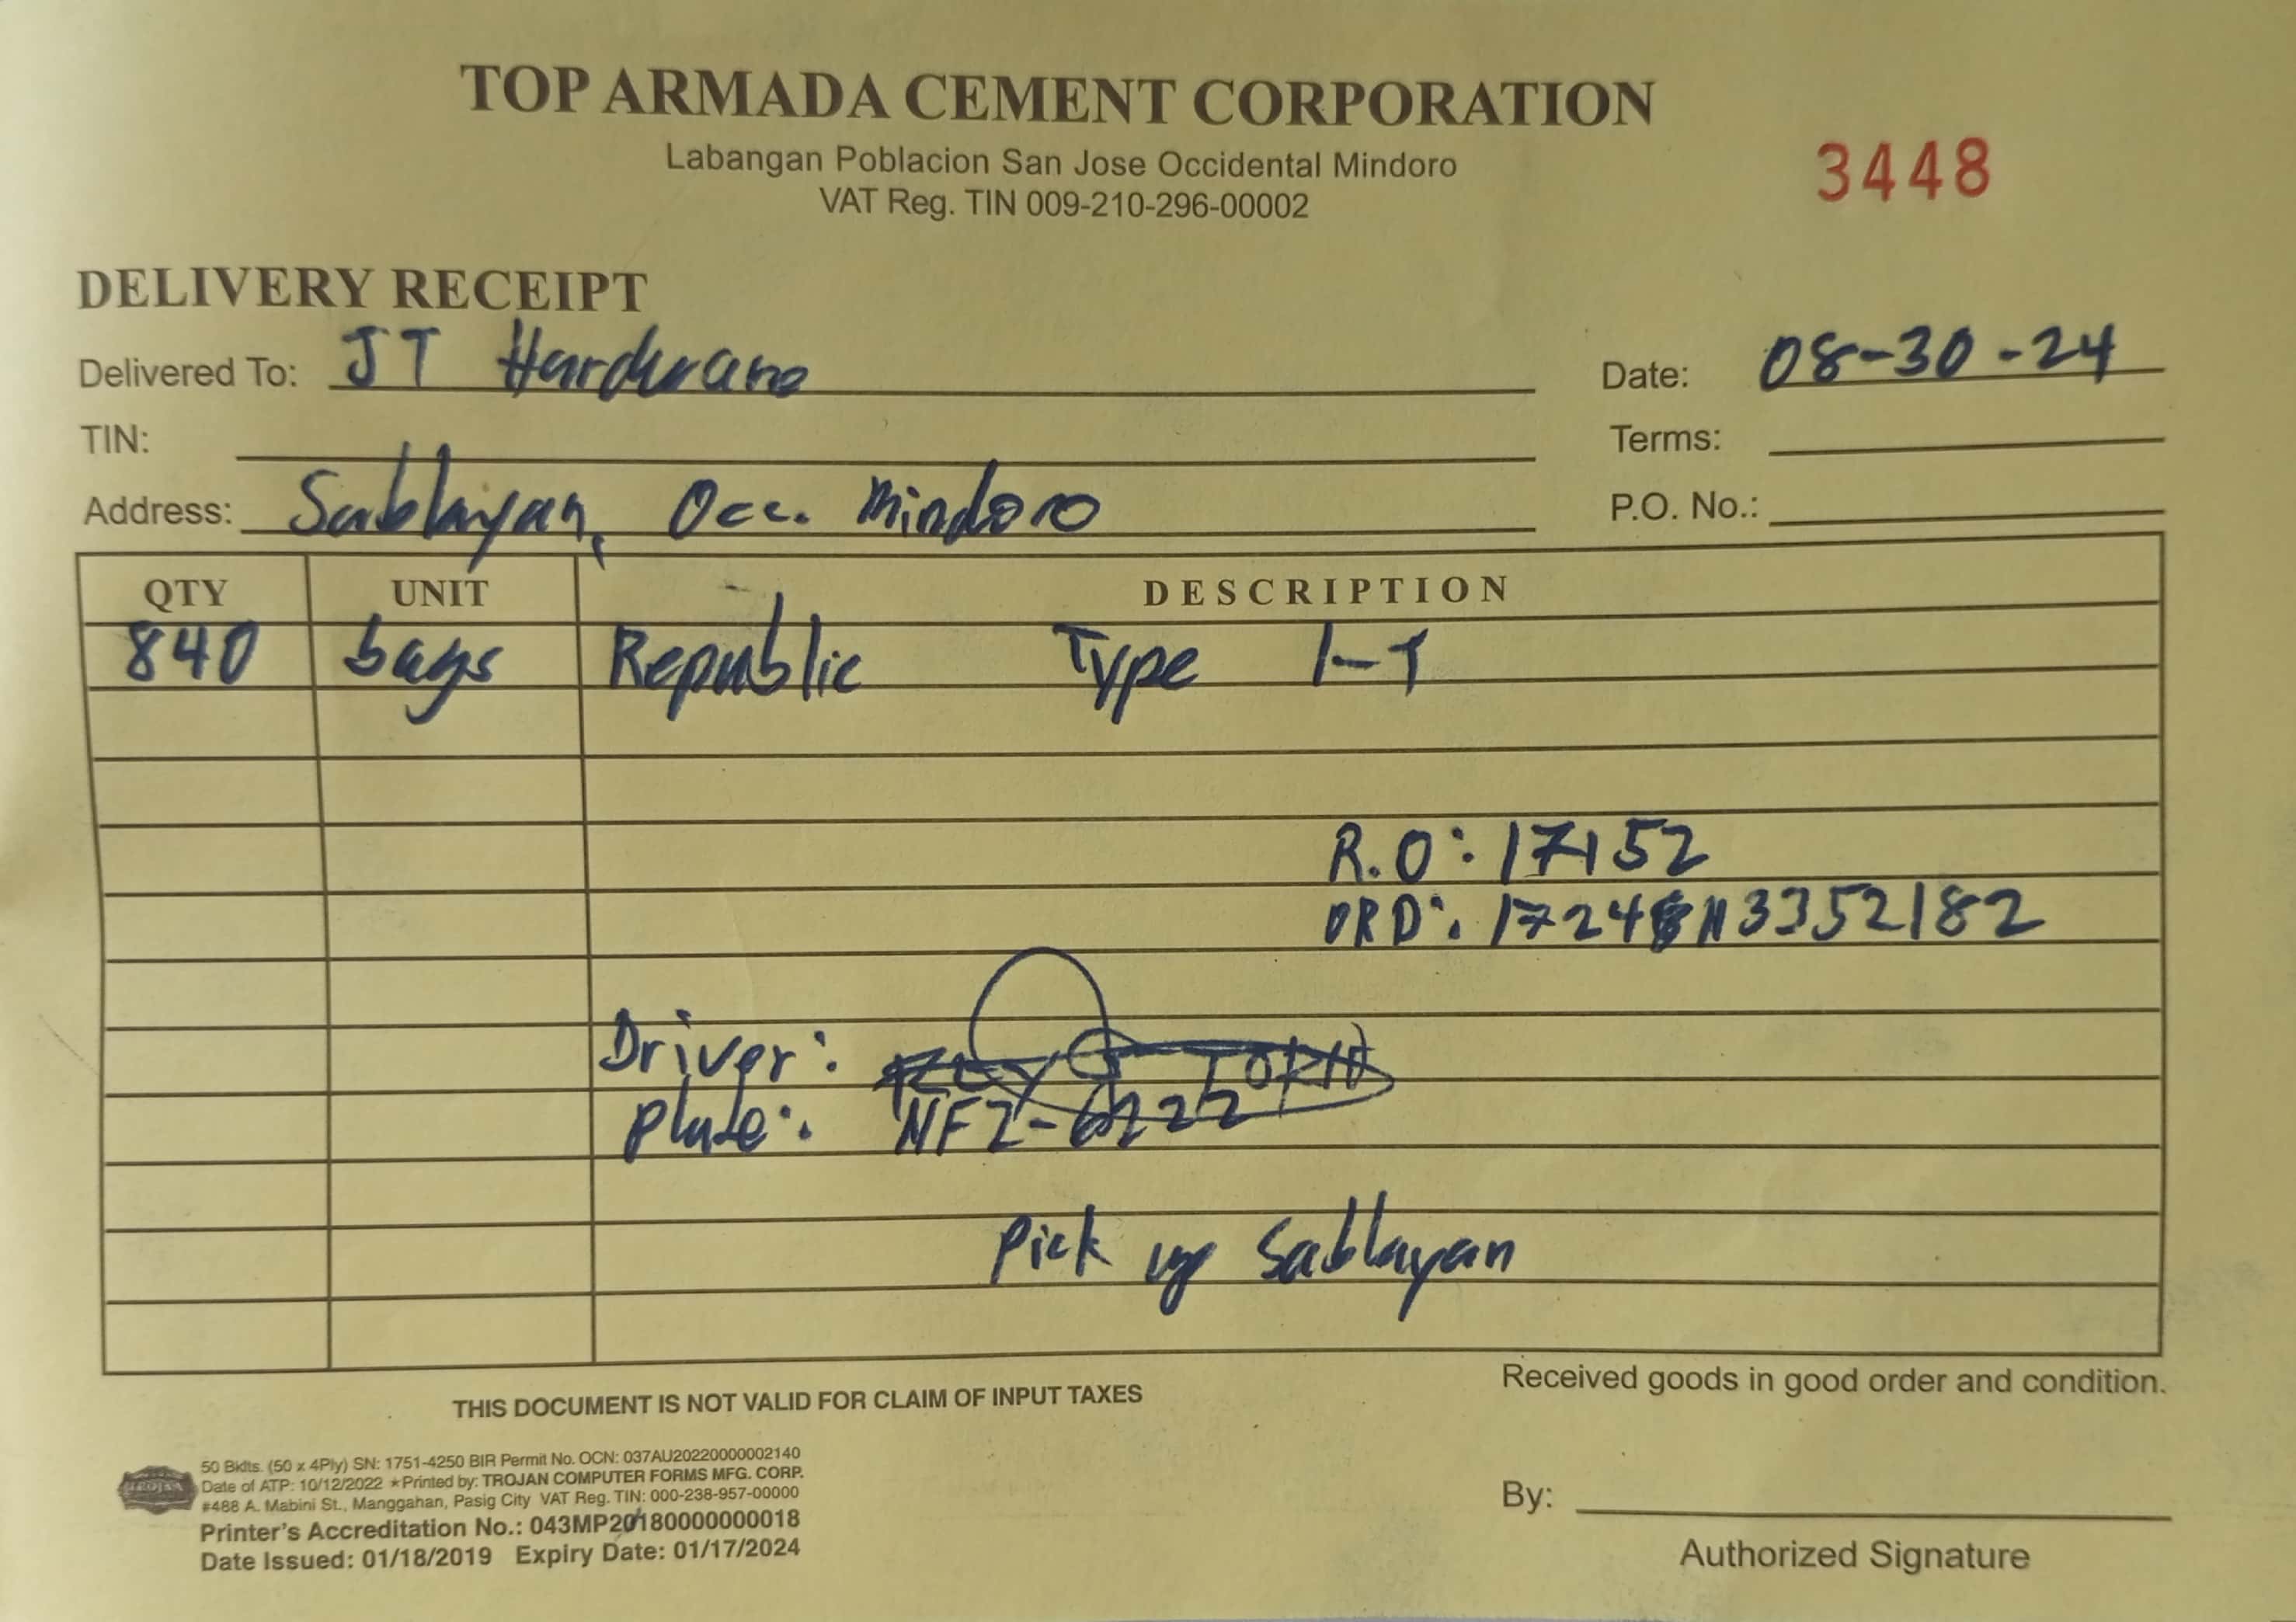 TOP ARMADA CEMENT CORPORATION
Labangan Poblacion San Jose Occidental Mindoro
VAT Reg. TIN 009-210-296-00002
3448
DELIVERY RECEIPT
Delivered To: JT Hardware
Date: 08-30-24
TIN:
Terms:
Address: Sablayan, Occ. Mindoro
P.O. No.:
QTY UNIT DESCRIPTION
840 bags Republic Type 1-T
R.O: 17152
ORD:
Driver:
Plate: NFZ-
Pick up Sablayan
THIS DOCUMENT IS NOT VALID FOR CLAIM OF INPUT TAXES
Received goods in good order and condition.
TROJAN
50 Bklts. (50 x 4Ply) SN: 1751-4250 BIR Permit No. OCN: 037AU20220000002140
Date of ATP: 10/12/2022 ★Printed by: TROJAN COMPUTER FORMS MFG. CORP.
#488 A. Mabini St., Manggahan, Pasig City VAT Reg. TIN: 000-238-957-00000
Printer's Accreditation No.: 043MP20180000000018
Date Issued: 01/18/2019 Expiry Date: 01/17/2024
By:
Authorized Signature